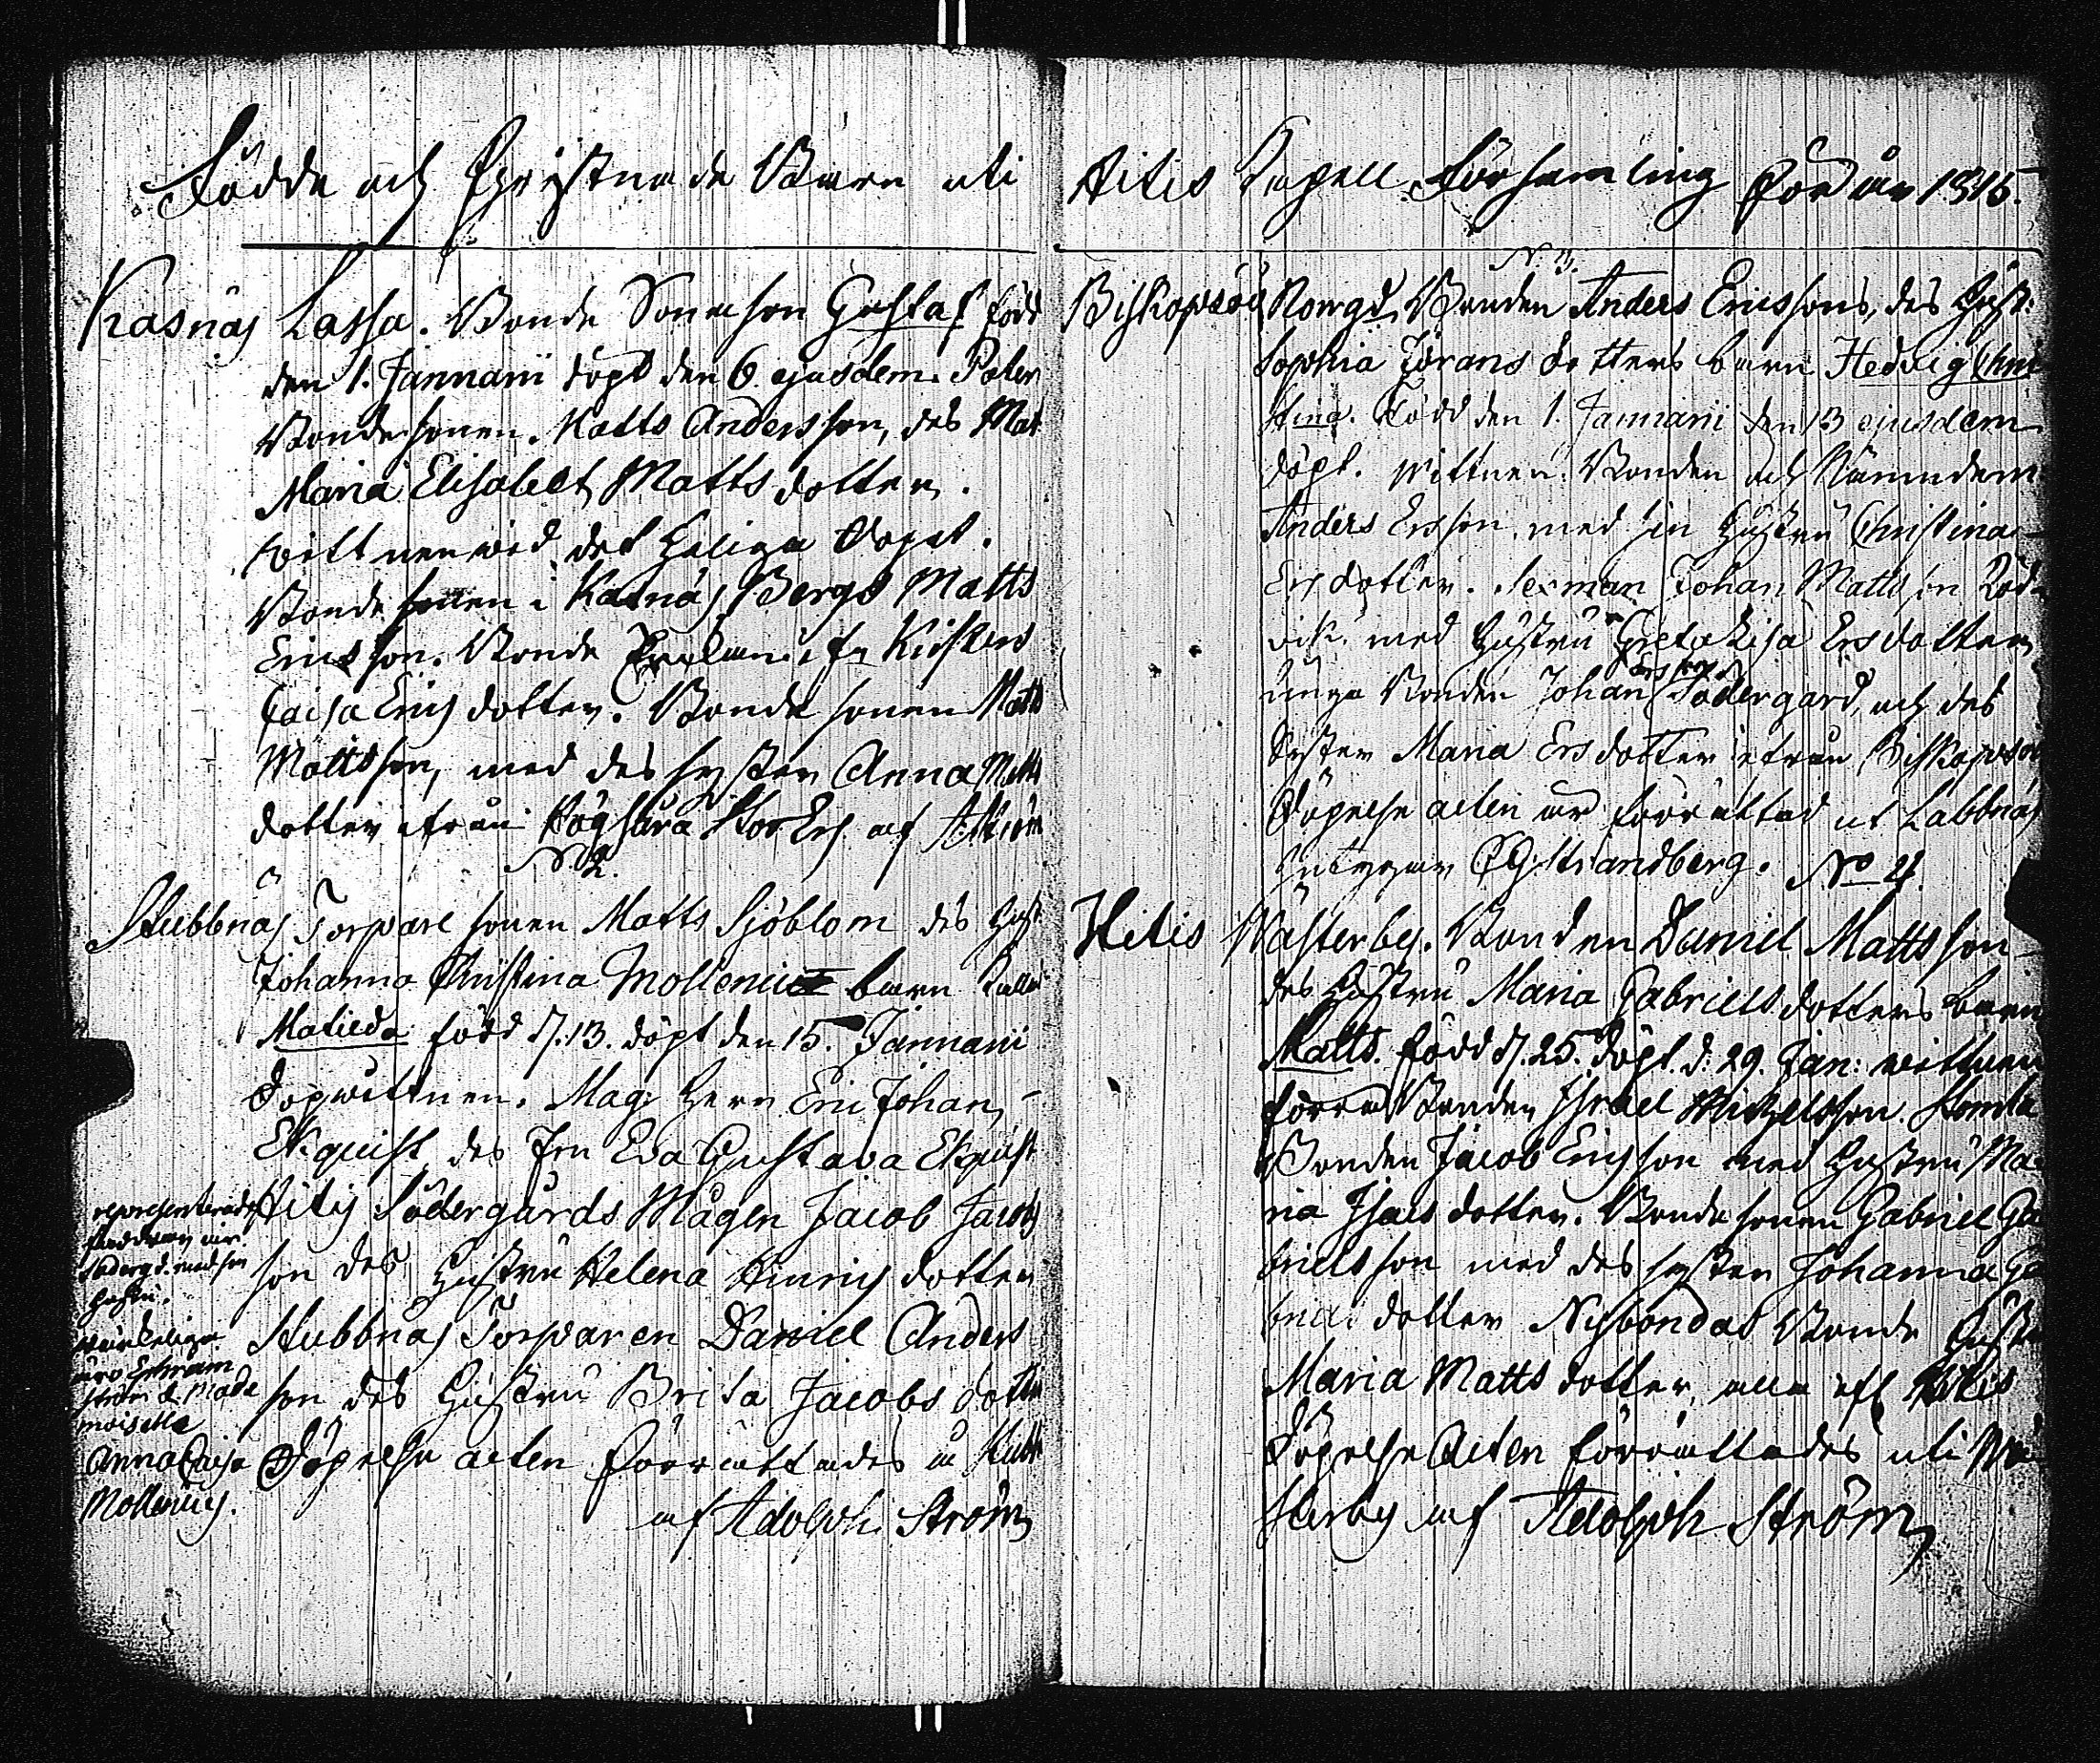 Födde och Christnade Barn uti Hitis Capell Församling för år 1815.
Kasnäs Lassa. Bonde Sonason Gustaf född
den 1. Januarii döpt den 6. ejusdem. Pater
Bondesonen Matts Andersson, des Mat
Maria Elisabeth Matts dotter.
Wittnen wid det Heliga Dopet.
Bonde sonen i Kasnäs Bergs Matts
Ericsson. Bonde
Caisa Ers dotter. Bonde sonen Matts
Mattsson, med des syster Anna Matts
dotter ifrån Högsåra Stor Ers af A. Ström
N. 2.
Stubbnäs Torpare sonen Matts Sjöblom des Hust
Johanna Christina Mollenius barn
Matilda född d. 13. döpt den 15. Januarii
Dopwittnen. Mag: Herr Eric Johan
Ekquist des fru Eva Gustava Ekquist
Hitis Södergårds Mågen Jacob Jacobs
son des Hustru Helena Henrics dotter
Stubbnäs Torparen Daniel Anders
son des Hustru Brita Jacobs dotter
Döpelse acten förrättades i Stubb
af Adolph Ström
representerades
Söderg:d med sin
Hustru.
wärkeliga
äro Ephraim
Ström & Made
moiselle
Anna Caisa
Mollenius.
N. 3.
Biskopsö Norrgd. Bonden Anders Ericssons, des Hust:
Sophia Jörans dotters barn Hedvig Chri
stina. Född den 1. Januarii den 13 ejusdem
döpt. Wittnen: Bonden och Nämndem
Anders Ersson med sin Hustru Christina
Ersdotter. Sexman Johan Mattsson Röd-
vik med Hustru Greta Lisa Ersdotter
unga Bonden Johan Ersson Södergård, och des
Syster Maria Ersdotter ifrån Biskopsö
Döpelse acten är förrättad uti Labbnäs
intygar CG Strandberg. No 4.
Hitis Wästerby. Bonden Daniel Mattsson
des Hustru Maria Gabriells dotters barn
Matts. född d. 25. döpt. d: 29. Jan: wittnen
förra Bonden Israel Michelsson.
Bonden Jacob Ersson med Hustru Ma-
ria Isacs dotter. Bonde sonen Gabriel Ga
brielsson med des syster Johanna Ga
briels dotter Nybondas Bonde Hustru
Maria Matts dotter, alla ifr Hitis
Döpelse Acten förrättades uti Wä
sterby af Adolph Ström